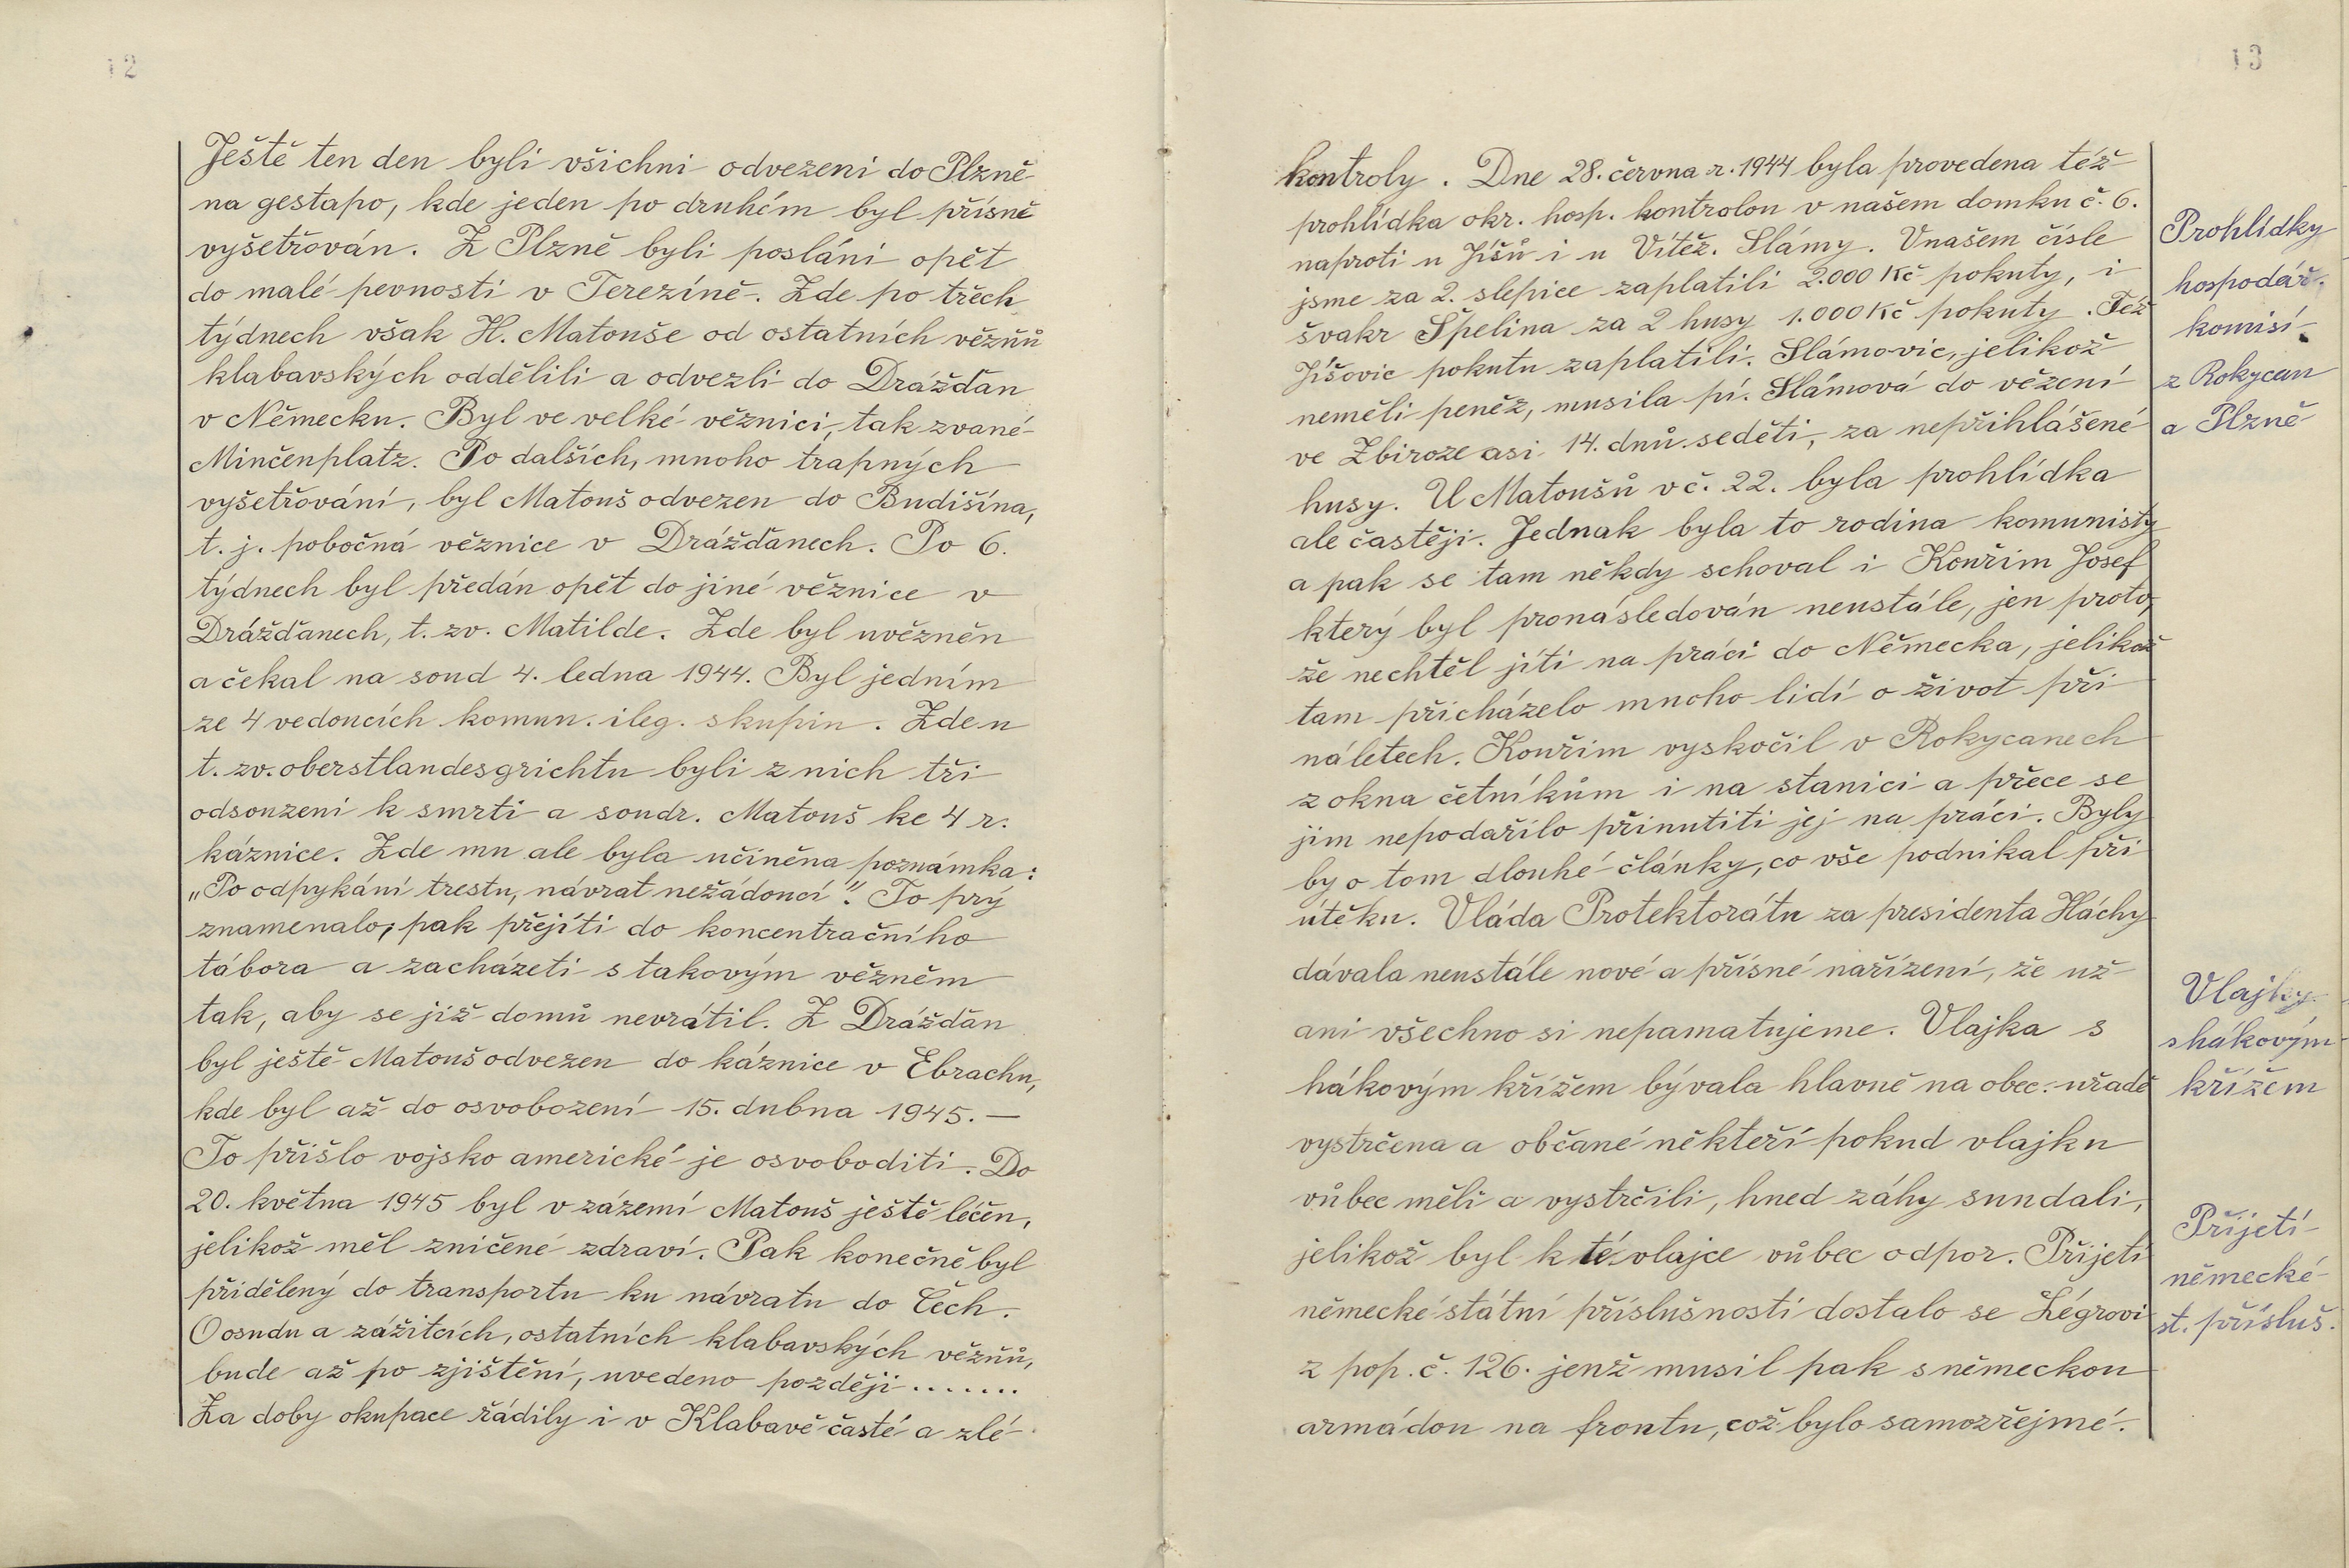 12
Ještě ten den byli všichni odvezeni do Plzně
na gestapo, kde jeden po druhém byl přísně
vyšetřován. Z Plzně byli posláni opět
do malé pevnosti v Terezíně. Zde po třech
týdnech však H. Matouše od ostatních vězňů
klabavských oddělili a odvezli do Drážďan
v Německu. Byl ve velké věznici, tak zvané
Minčenplatz. Po dalších, mnoho trapných
vyšetřování, byl Matouš odvezen do Budišína,
t. j. pobočná věznice v Drážďanech. Po 6.
týdnech byl předán opět do jiné věznice v
Drážďanech, t. zv. Matilde. Zde byl uvězněn
a čekal na soud 4. ledna 1944. Byl jedním
ze 4 vedoucích komun. ileg. skupin. Zde u
t. zv. oberstlandesgrichtu byli z nich tři
odsouzeni k smrti a soudr. Matouš ke 4 r.
káznice. Zde mu ale byla učiněna poznámka:
„Po odpykání trestu, návrat nežádoucí“. To prý
znamenalo, pak přejíti do koncentračního
tábora a zacházeti s takovým vězněm
tak, aby se již domů nevrátil. Z Drážďan
byl ještě Matouš odvezen do káznice v Ebrachu,
kde byl až do osvobození 15. dubna 1945. —
To přišlo vojsko americké je osvoboditi. Do
20. května 1945 byl v zázemí Matouš ještě léčen,
jelikož měl zničené zdraví. Pak konečně byl
přidělený do transportu ku návratu do Čech.
O osudu a zážitcích, ostatních klabavských vězňů,
bude až po zjištění, uvedeno později.......
Za doby okupace řádily i v Klabavě časté a zlé
13
kontroly. Dne 28. června r. 1944 byla provedena též
prohlídka okr. hosp. kontrolou v našem domku č. 6.
naproti u Jíšů i u Vítěz. Slámy. V našem čísle
jsme za 2. slepice zaplatili 2.000 Kč pokuty, i
švakr Špelina za 2 husy 1.000 Kč pokuty. Též
Jíšovic pokutu zaplatili. Slámovic, jelikož
neměli peněz, musila pí. Slámová do vězení
ve Zbiroze asi 14. dnů seděti, za nepřihlášené
husy. U Matoušů v č. 22. byla prohlídka
ale častěji. Jednak byla to rodina komunisty
a pak se tam někdy schoval i Kouřim Josef
který byl pronásledován neustále, jen proto,
že nechtěl jíti na práci do Německa, jelikož
tam přicházelo mnoho lidí o život při
náletech. Kouřim vyskočil v Rokycanech
z okna četníkům i na stanici a přece se
jim nepodařilo přinutiti jej na práci. Byly
by o tom dlouhé články, co vše podnikal při
útěku. Vláda Protektorátu za presidenta Háchy
dávala neustále nové a přísné nařízení, že už
ani všechno si nepamatujeme. Vlajka s
hákovým křížem bývala hlavně na obec. uřadě
vystrčena a občané někteří pokud vlajku
vůbec měli a vystrčili, hned záhy sundali,
jelikož byl k té vlajce vůbec odpor. Přijetí
německé státní příslušnosti dostalo se Légrovi
z pop. č. 126. jenž musil pak s německou
armádou na frontu, což bylo samozřejmé.
Prohlídky
hospodář.
komisí
z Rokycan
a Plzně
Vlajky
s hákovým
křížem
Přijetí
německé
st. přísluš.